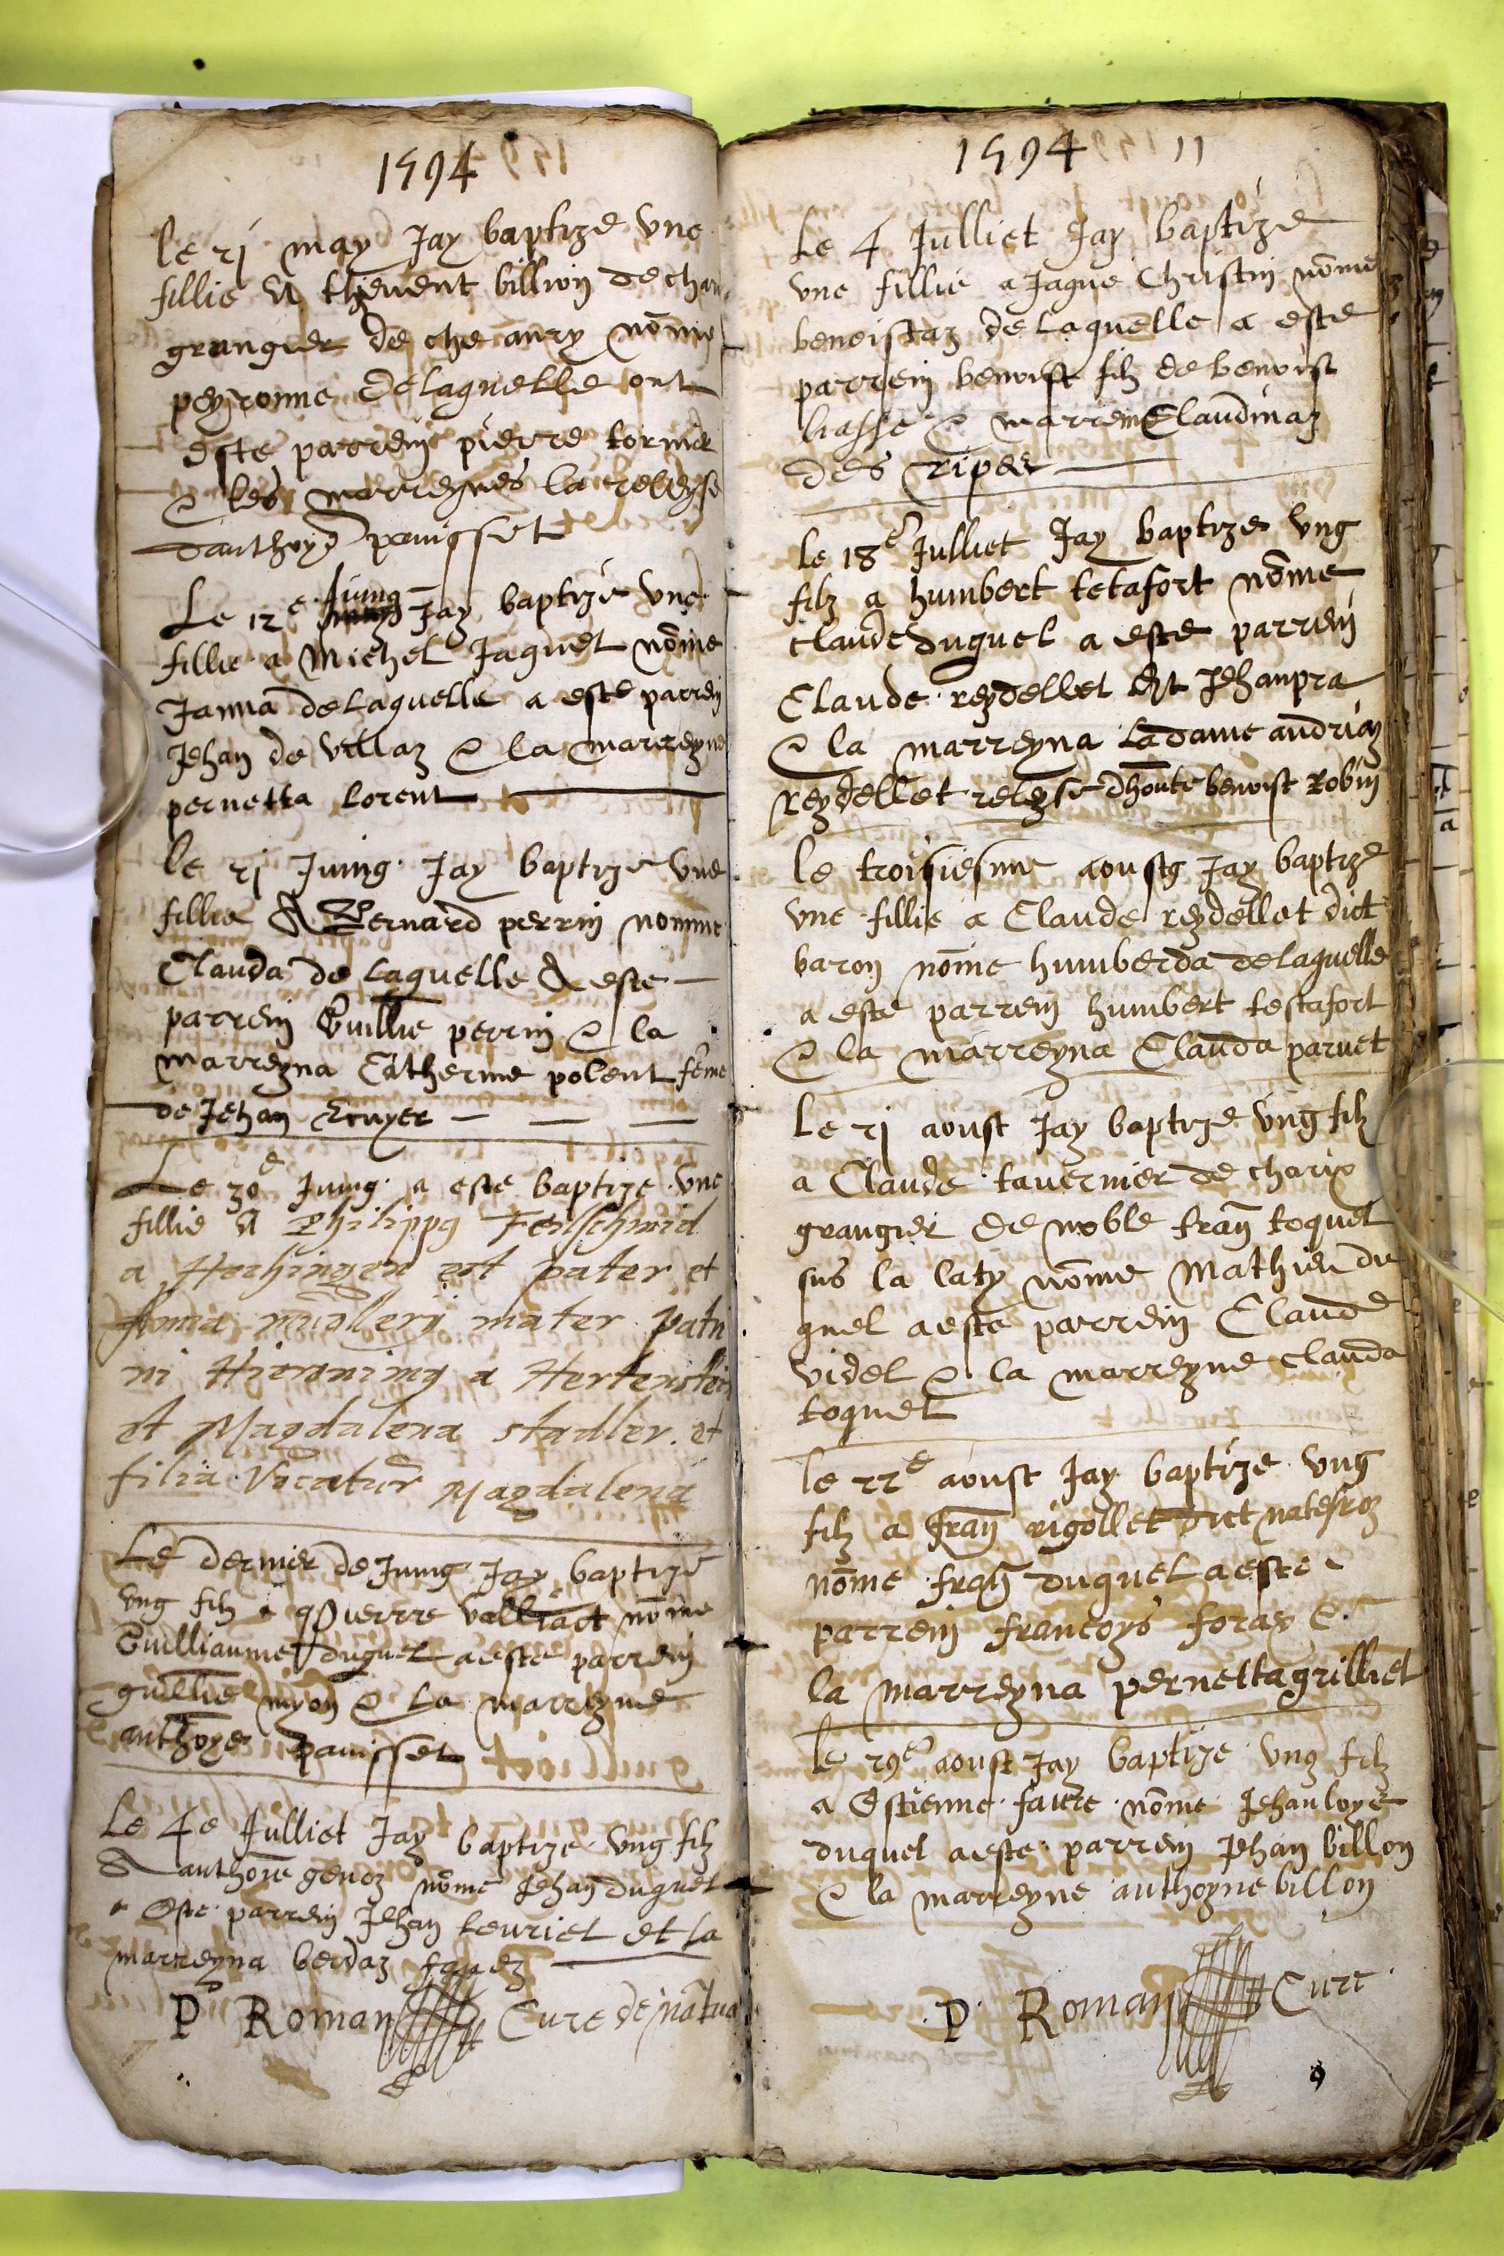 1594
le 21 may Jay baptize une
fillie a thevent billion de
grangier de che anry nome
peyronne de laquelle ont
este parrein pierre tornier
& les marreynes la releysse
danthoyne panisset
Le 12e Juing Jay baptize une
fillie a Michel Jaquet nome
Janna de laquelle a este parrein
Jehan de villaz & la marreyne
pernetta lorent
le 21 Juing Jay baptize une
fillie A Bernard perrin nomme
Clauda de laquelle A este
parrein Guillie perrin & la
marreyna Catherine polent feme
de Jehan Ecuyer
Le 30e Juing a este baptize une
fillie A Philippg Feilschmid
a Hechingen est pater et
Anna mullerin mater patri
ni Hieronimg a Hertenstein
et Magdalena stadler. et
filia Vocatur Magdalena
Le dernier de Juing Jay baptize
ung filz a pierre valliact nome
Guilliaume duquel a este parrein
guillie myon & la marreyne
anthoyne panisset
Le 4e Julliet Jay baptize ung filz
A anthoine genoz nome Jehan duquel
a Este parrein Jehan levriet et la
marreyna berdaz
P Roman Cure de natua
1594 11
Le 4 Julliet Jay baptize
une fillie a Jaque Christin nome
benoistaz de laquelle a este
parrein benoist filz de benoist
& marreine Claudinaz
des ripes
le 18e Julliet Jay baptize ung
filz a humbert tetafort nome
claude duquel a este parrein
Claude reydellet dit Jehanpra
& la marreyna la dame andriaz
reydellet releysse dhonte benoist Robin
le troisiesme aoustg Jay baptize
une fillie a Claude reydellet dict
baron nome humberda de laquelle
a este parrein humbert testafort
& la marreyna Clauda parvet
le 21 aoust Jay baptize ung filz
a Claude tavernier de charix
grangier de noble fran toquet
sus la laty nome Mathieu du
quel a este parrein Claude
videl & la marreyne clauda
toquet
le 22e aoust Jay baptize ung
filz a fran rigollet dict
nome fran duquel a este
parrein francoys foray &
la marreyna pernetta grilliet
le 29e aoust Jay baptize ung filz
a Estienne favre nome Jehan loye
duquel a este parrein Jehan billon
& la marreyne anthoyne billon
P Roman Cure